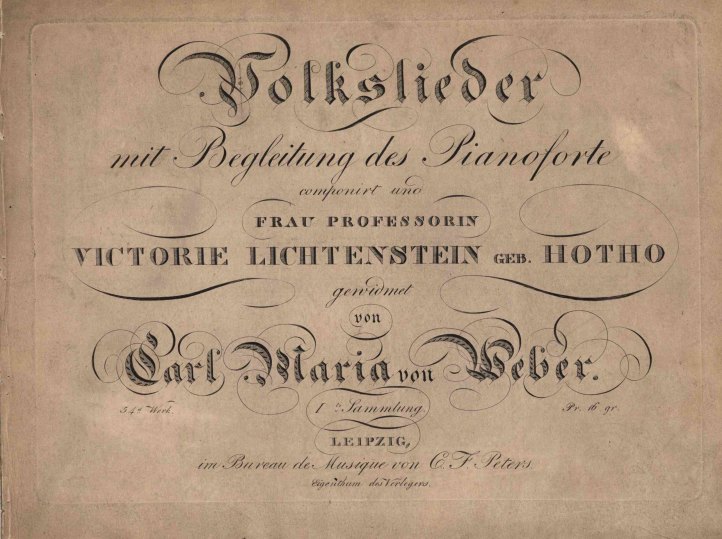 Volkslieder
mit Begleitung des Pianoforte
componirt und
FRAU PROFESSORIN
VICTORIE LICHTENSTEIN GEB. HOTHO
gewidmet
von
Carl Maria von Weber.
54s Werk. Ite Sammlung. Pr. 16 gr.
LEIPZIG,
im Bureau de Musique von C. F. Peters.
Eigenthum des Verlegers.